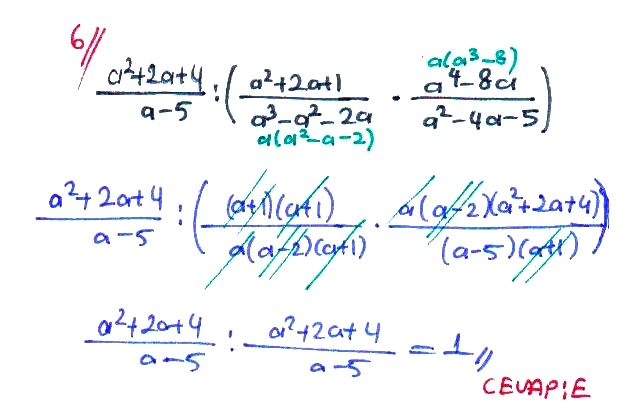 6//
a(a³-8)
(a²+2a+4)/(a-5) : ( (a²+2a+1)/(a³-a²-2a) · (a⁴-8a)/(a²-4a-5) )
a(a²-a-2)
(a²+2a+4)/(a-5) : ( (a+1)(a+1)/(a(a-2)(a+1)) · a(a-2)(a²+2a+4)/((a-5)(a+1)) )
(a²+2a+4)/(a-5) : (a²+2a+4)/(a-5) = 1//
CEVAP:E